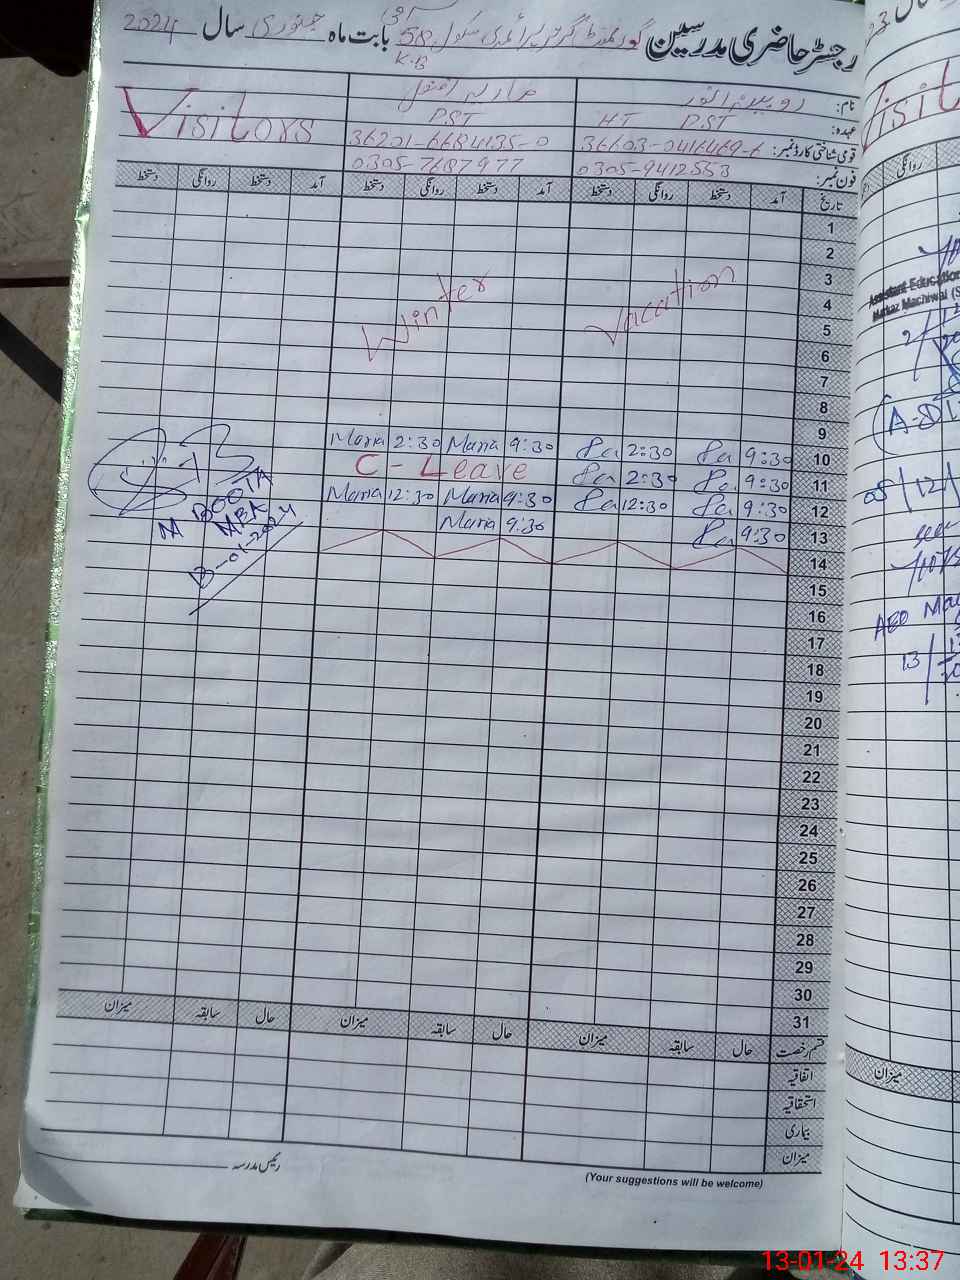 رجسٹر حاضری مدرسین گورنمنٹ گرلز پرائمری سکول 58 بابت ماہ جنوری سال 2024
K.B
نام: روبینہ انور ماریہ افضل Visitors
عہدہ: PST HT PST
قومی شناختی کارڈ نمبر: 36603-0416469-6 36201-6684135-0
فون نمبر: 0305-9412553 0305-7687977
تاریخ آمد دستخط روانگی دستخط آمد دستخط روانگی دستخط آمد دستخط روانگی دستخط
1
2
3
Winter Vacation
4
5
6
7
8
9
10 9:30 2:30 9:30 Maria 2:30 Maria
11 9:30 2:30 C - Leave
12 9:30 12:30 9:30 Maria 12:30 Maria
13 9:30 9:30 Maria
M BOOTA
MEA
13-01-2024
14
15
16
17
18
19
20
21
22
23
24
25
26
27
28
29
30
31
قسم رخصت حال سابقہ میزان حال سابقہ میزان حال سابقہ میزان
اتفاقیہ
استحقاقیہ
بیماری
میزان
رئیس مدرسہ
(Your suggestions will be welcome)
روانگی
Assistant Education
Markaz Machiwal
A-DI
AEO
میزان
13-01-24 13:37